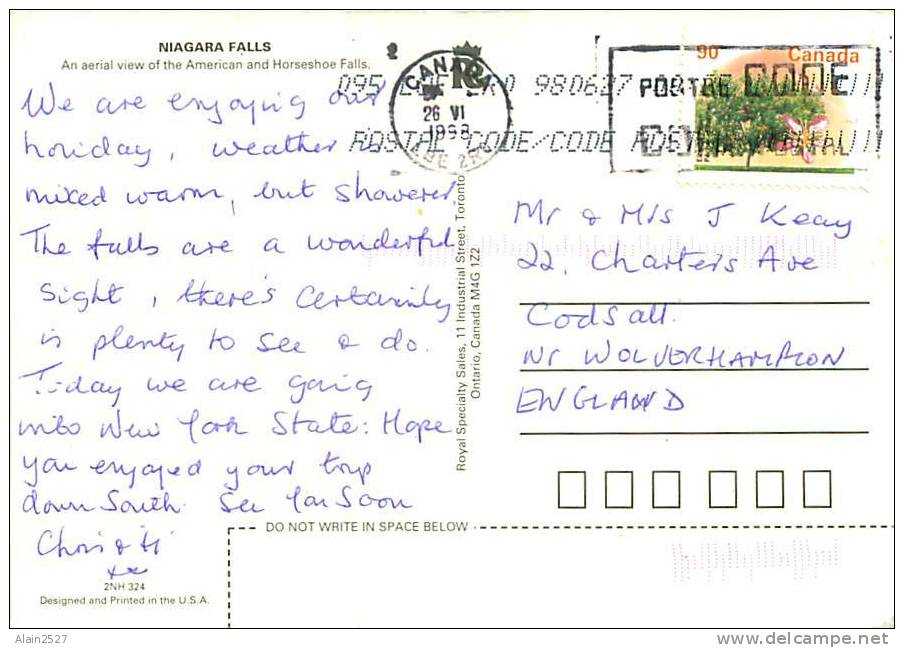 NIAGARA FALLS
An aerial view of the American and Horseshoe Falls.
We are enjoying our
holiday, weather
mixed warm, but showered
The falls are a wonderful
sight, there's certainly
is plenty to see & do.
Today we are going
into New York State: Hope
you enjoyed your trip
down South. See You Soon
Chris &
xx
2NH 324
Designed and Printed in the U.S.A.
Royal Specialty Sales, 11 Industrial Street, Toronto
Ontario, Canada M4G 1Z2
CANADA
26 VI
1998
980627
POSTAL CODE/CODE POSTAL
90 Canada
POSTAL CODE
CODE POSTAL
Mr & Mrs J Keay
22, Charters Ave
Codsall.
Nr WOLVERHAMPTON
ENGLAND
DO NOT WRITE IN SPACE BELOW
Alain2527
delcampe.net